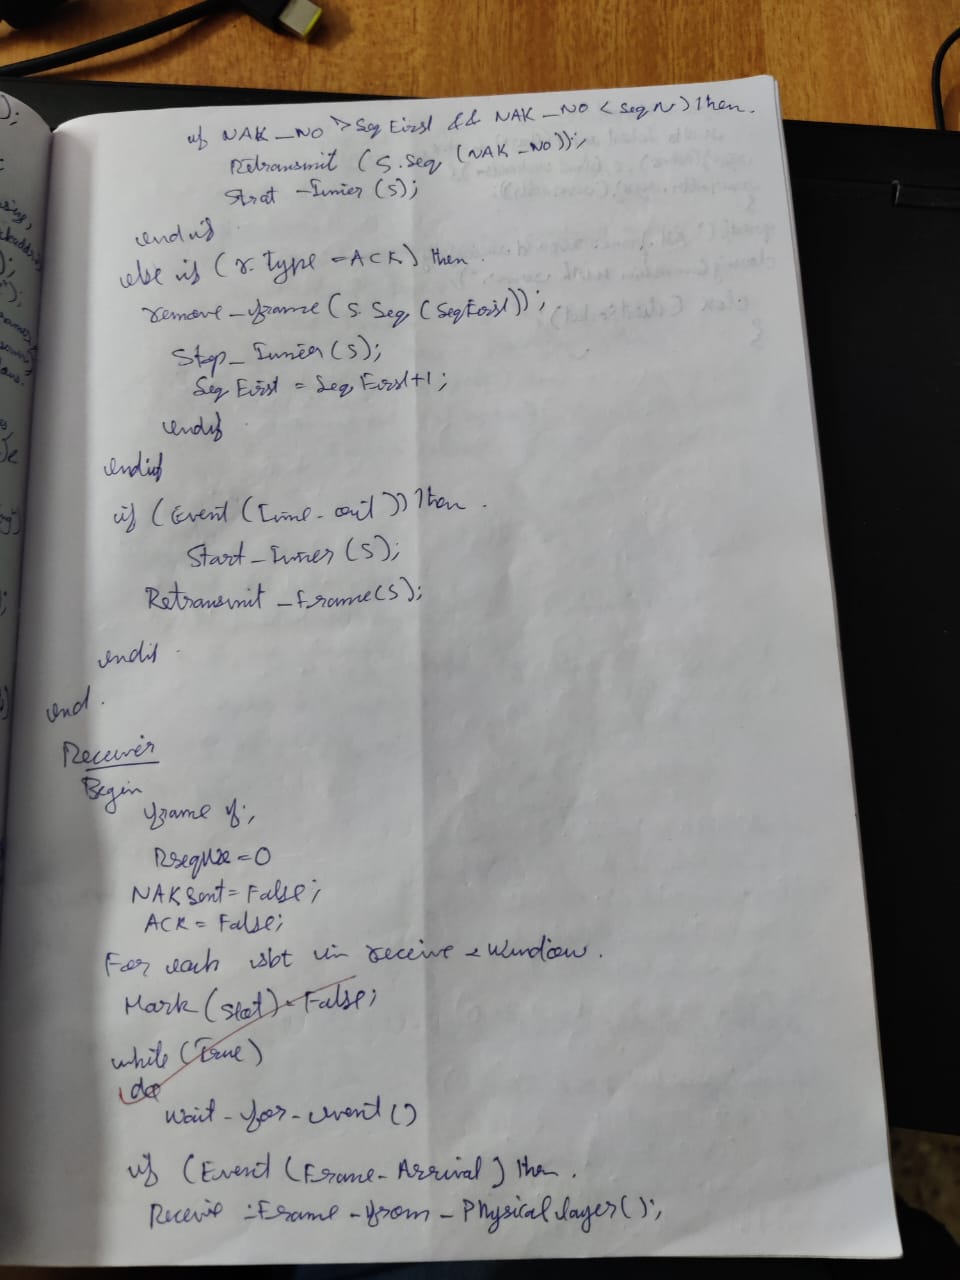 if NAK_NO > SeqFirst && NAK_NO < SeqN) Then.
Retransmit (S.Seq (NAK-NO));
Strat -Timer (S);
endif
else if (r. type = ACK) then.
remove-frame (S. Seq (SeqFirst));
Stop_Timer (S);
Seq First = Seq First+1;
endif
endif
if (Event (Time-out)) Then.
Start_Timer (S);
Retransmit_frame(S);
endif
end.
Receiver
Begin
frame f;
=0
NAK Sent = False;
ACK = False;
For each slot in receive - Window.
Mark (Slot) = False;
while (True)
do
Wait-for-event ()
if (Event (Frame-Arrival) then.
Receive -Frame-from-Physical layer();